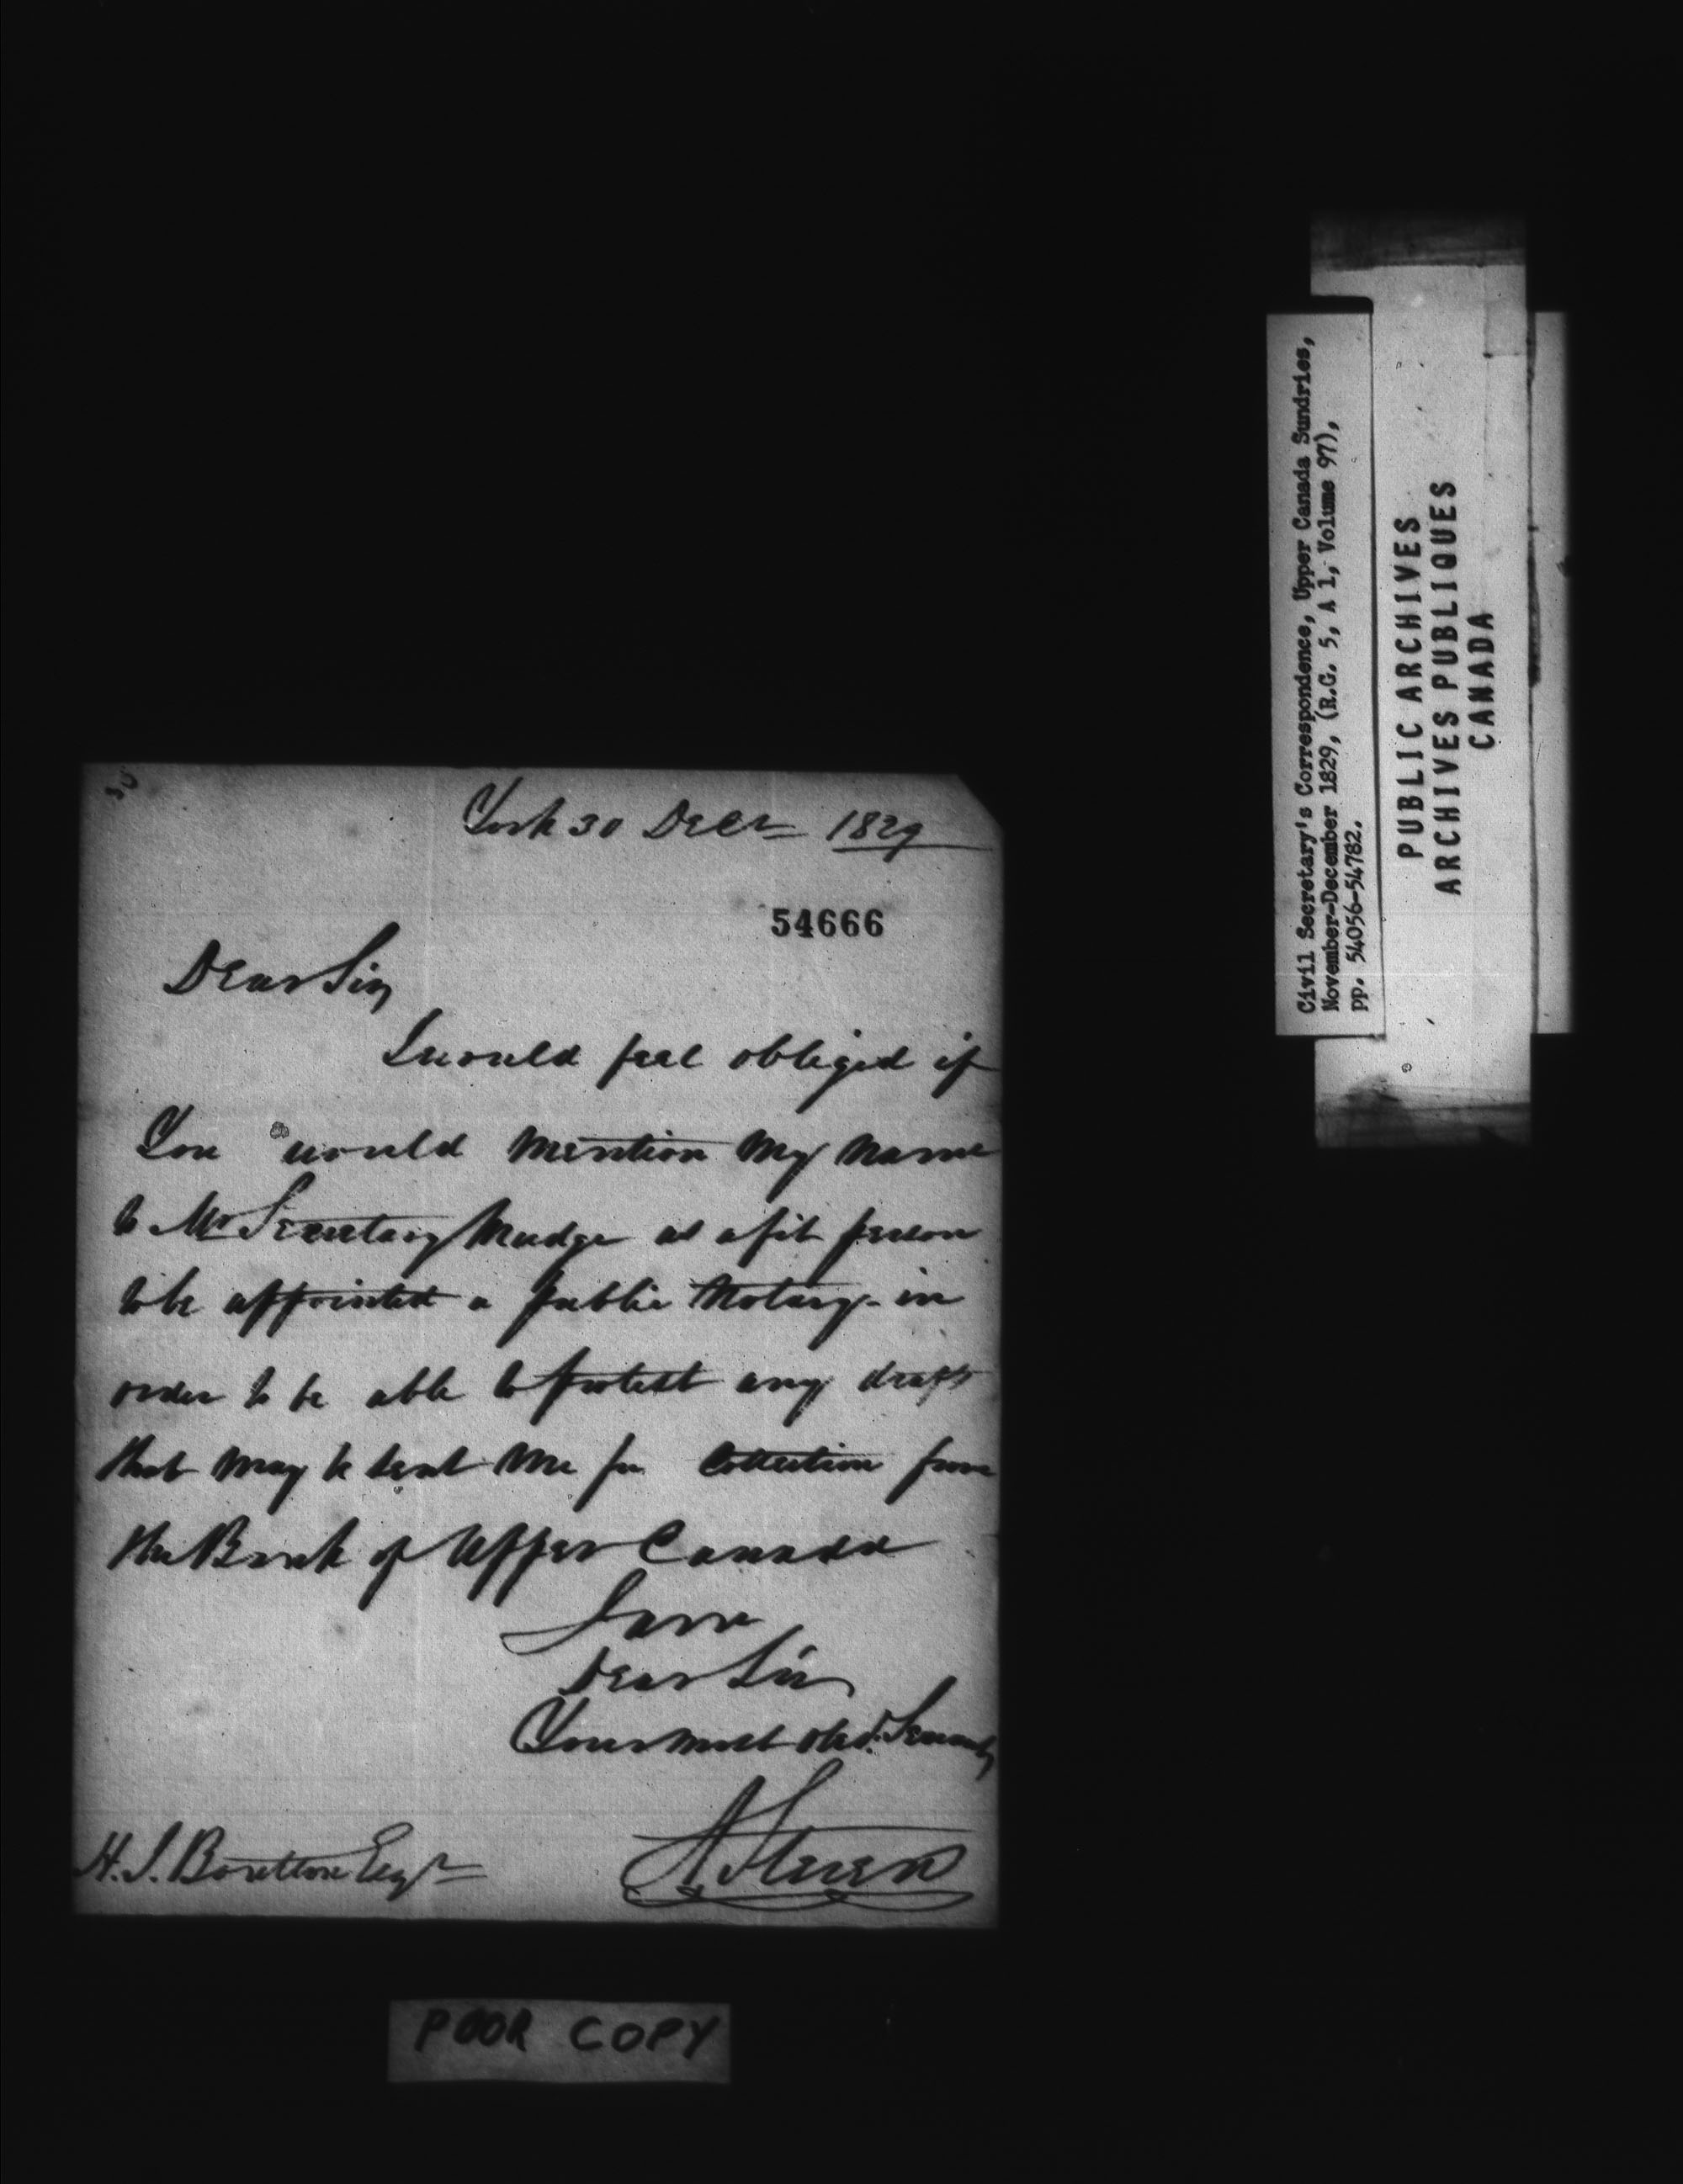 York 30 Decr 1829
54666
Dear Sir,
I would feel obliged if
You would mention my name
to Mr Secretary Mudge as a fit person
to be appointed a public Notary - in
order to be able to protest any draft
that may be sent me for Collection from
the Bank of Upper Canada
I am
Dear Sir
Your most obed. Servant
A Steven
H. J. Boulton Esqr
POOR COPY
Civil Secretary's Correspondence, Upper Canada Sundries,
November-December 1829, (R.G. 5, A 1, Volume 97),
pp. 54056-54782.
PUBLIC ARCHIVES
ARCHIVES PUBLIQUES
CANADA